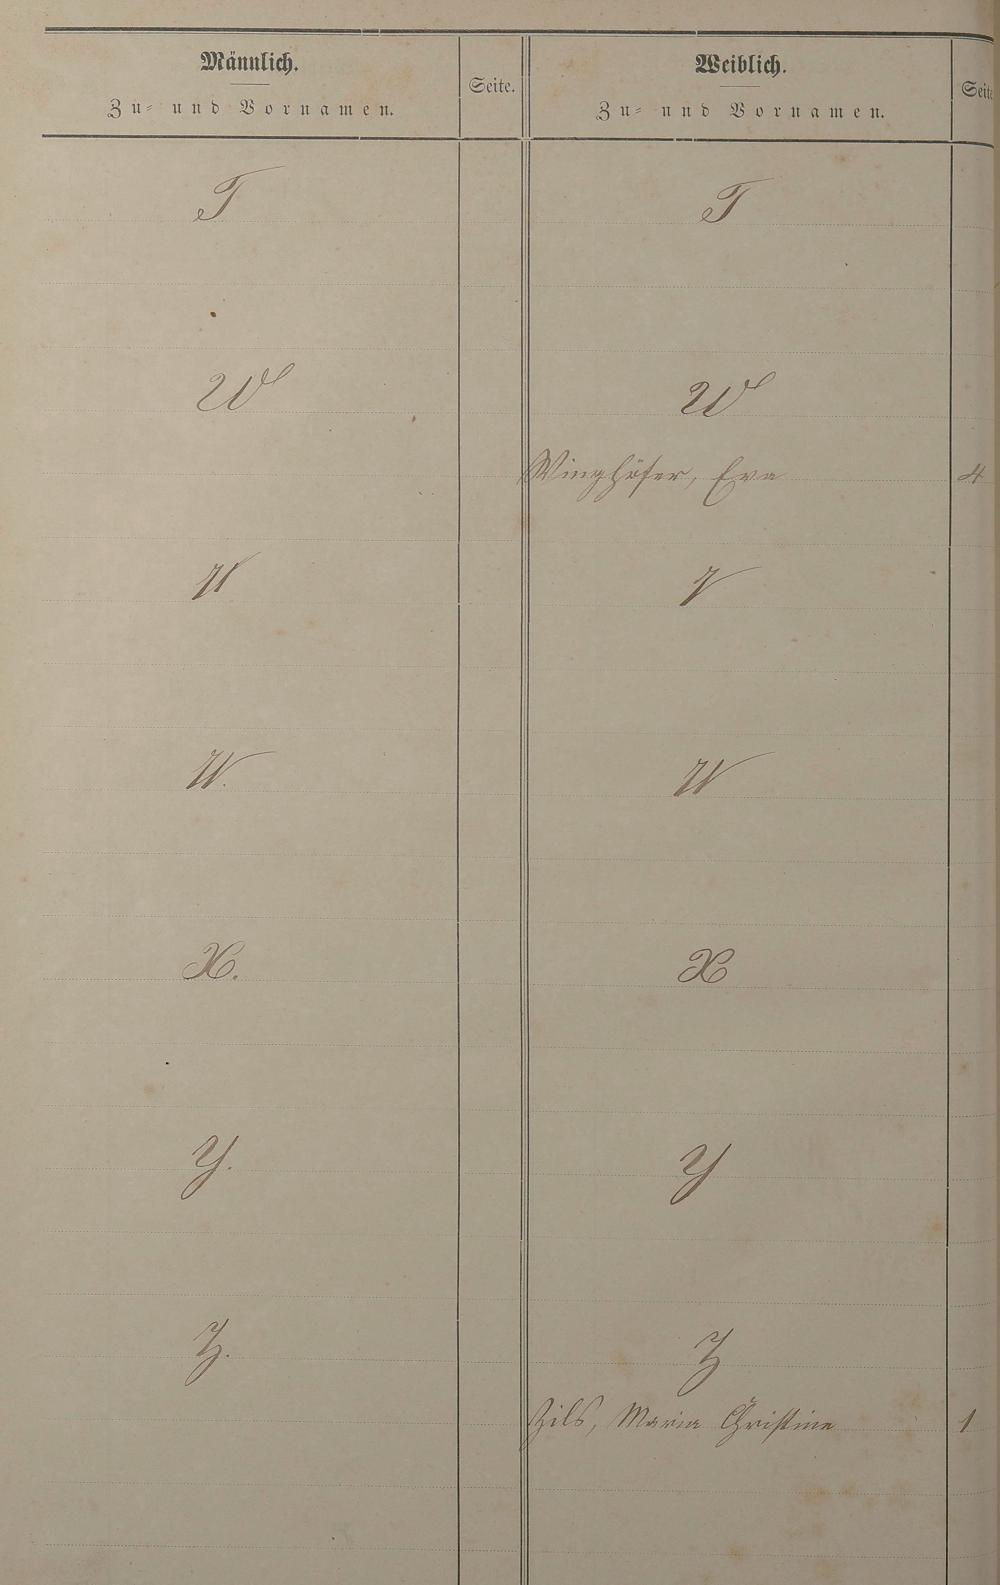 Männlich.
Zu- und Vornamen.
Seite.
Weiblich.
Zu- und Vornamen.
Seite
T
T
W
W
Winghöfer, Eva 4
V
W.
W
X.
X
Y.
Y
Z.
Z
Zils, Maria Christine 1